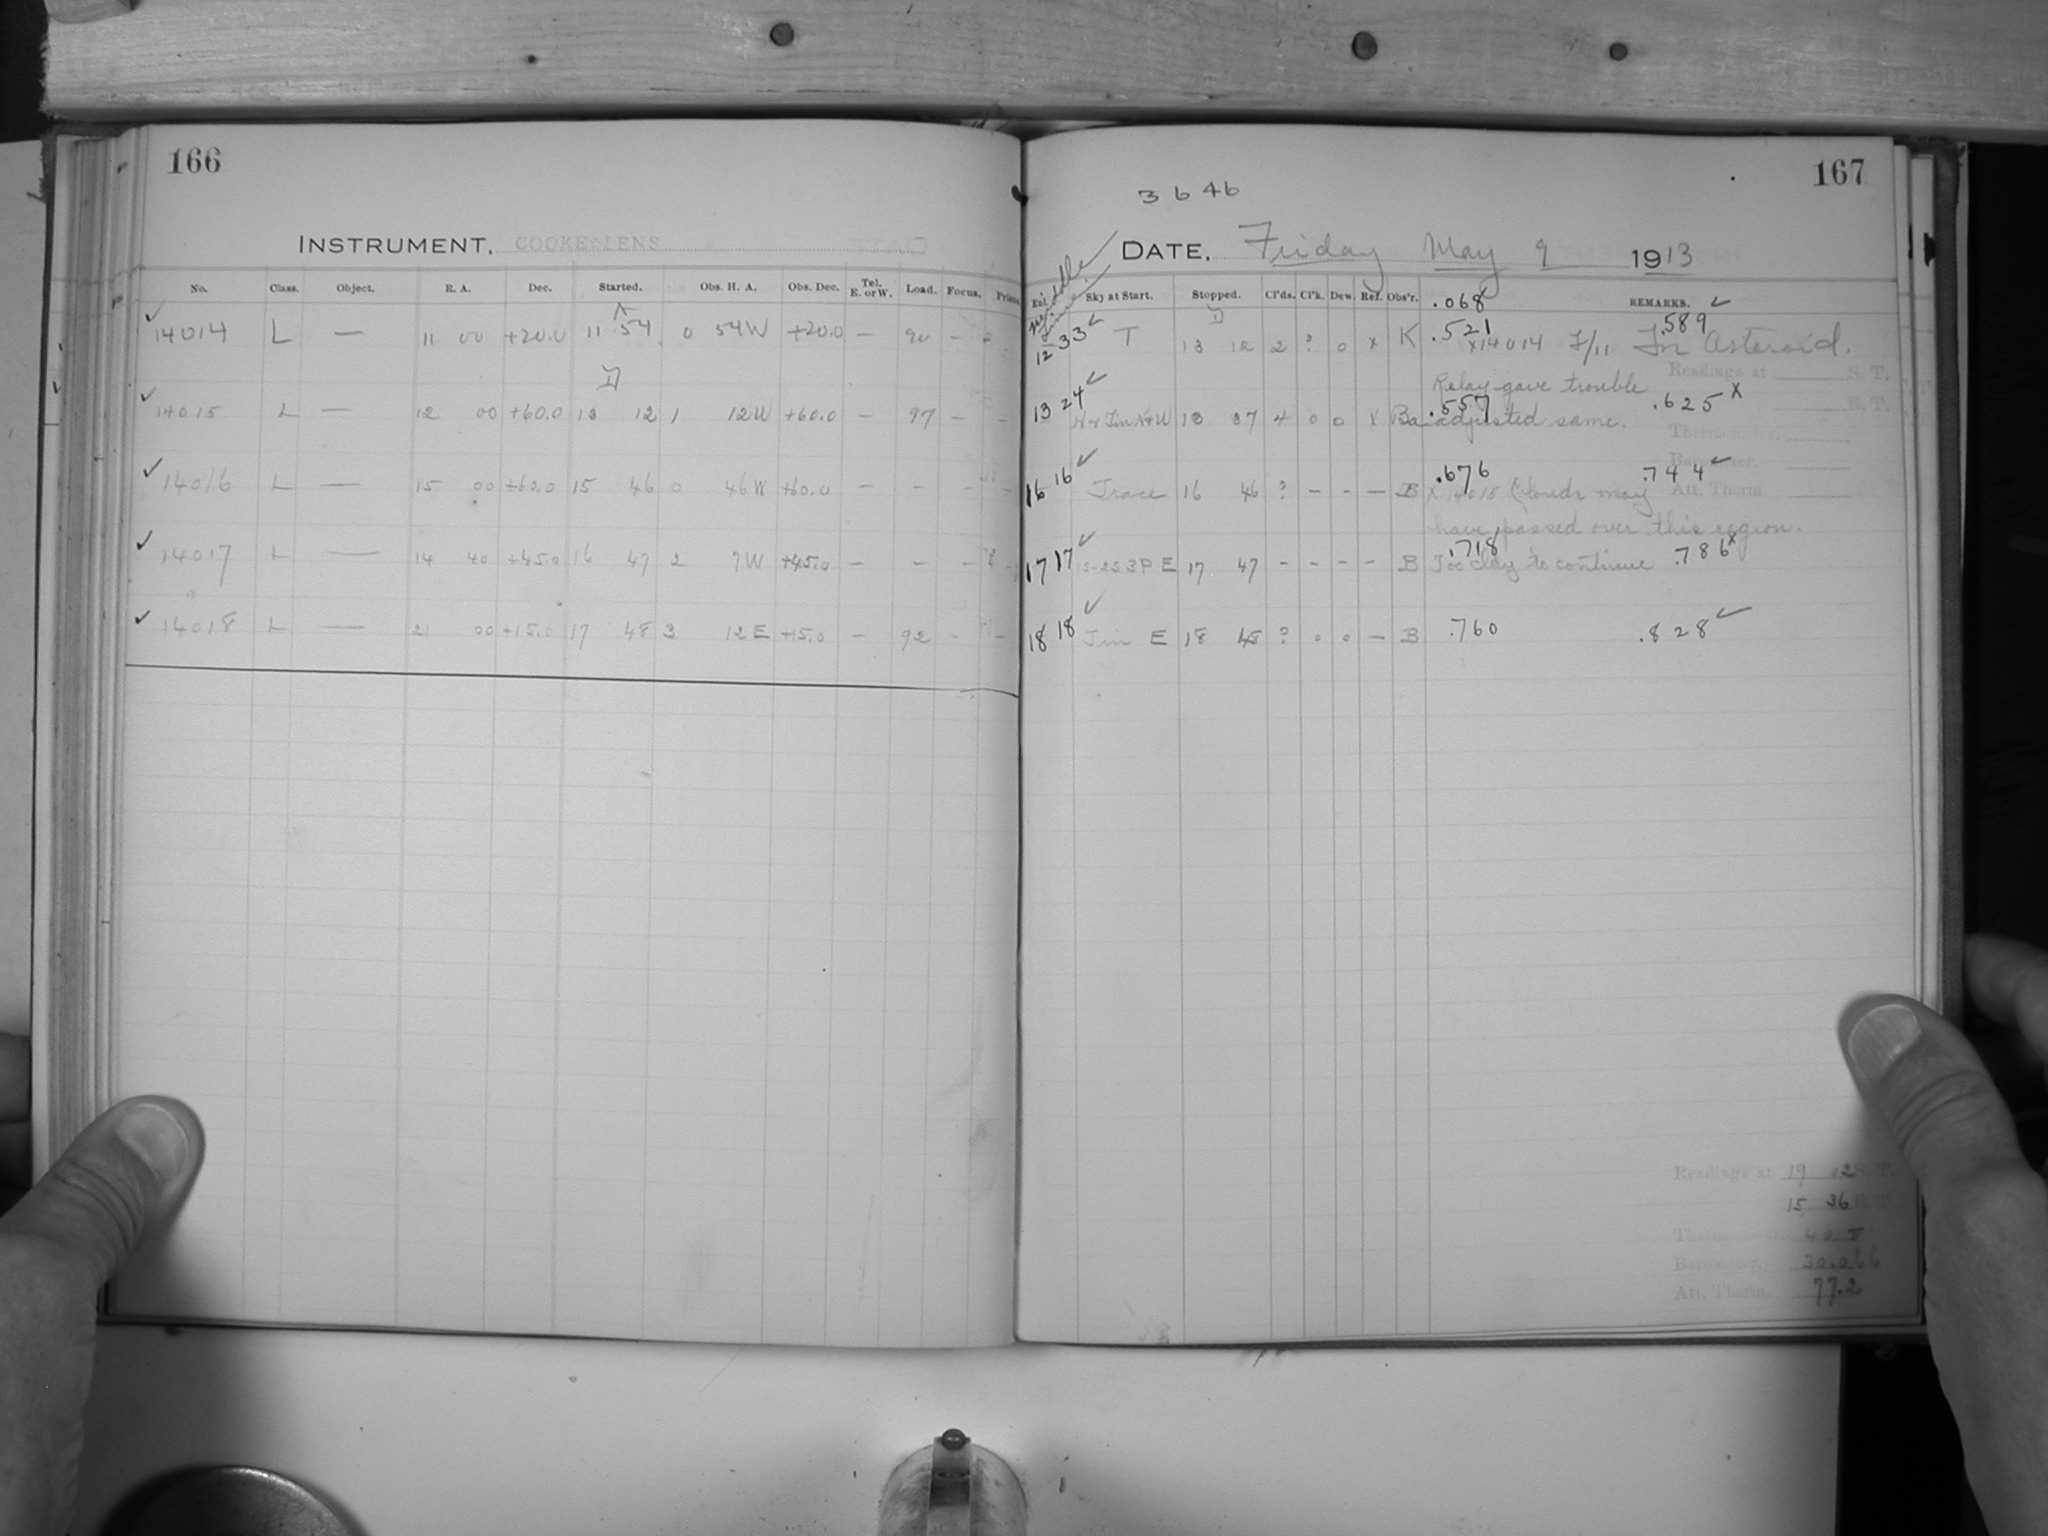 166
INSTRUMENT, COOKE LENS
No. Class. Object. R. A. Dec. Started. Obs. H. A. Obs. Dec. Tel. E. or W. Load. Focus. Prism.
14014 L — 11 00 +20.0 11 54 0 54W +20.0 — 90 —
14015 L — 12 00 +60.0 13 12 1 12W +60.0 — 97 — —
14016 L — 15 00 +60.0 15 46 0 46W +60.0 — — —
14017 L — 14 40 +45.0 16 47 2 7W +45.0 — — —
14018 L — 21 00 +15.0 17 48 3 12E +15.0 — 92 — —
167
3646
DATE, Friday May 9 1913
Middle Time
Sky at Start. Stopped. Cl'ds. Cl'k. Dew. Ref. Obs'r. .068 REMARKS.
12 33 T 13 12 2 ? 0 x K .521 .589
x14014 F/11 For Asteroid.
Readings at S. T.
Relay gave trouble
13 24 13 37 4 0 0 x Ba .557 .625 x
adjusted same.
E. T.
Thermometer.
Barometer.
16 16 Trace 16 46 ? — — — B .676 .744
x 14015 Clouds may
Att. Therm.
have passed over this region.
17 17 E 17 47 — — — — B .718 .786 x
Too clay to continue
18 18 E 18 48 ? 0 0 — B .760 .828
Readings at 19 02 S. T.
15 36 E. T.
Thermometer. 40.5
Barometer. 30.066
Att. Therm. 77.2